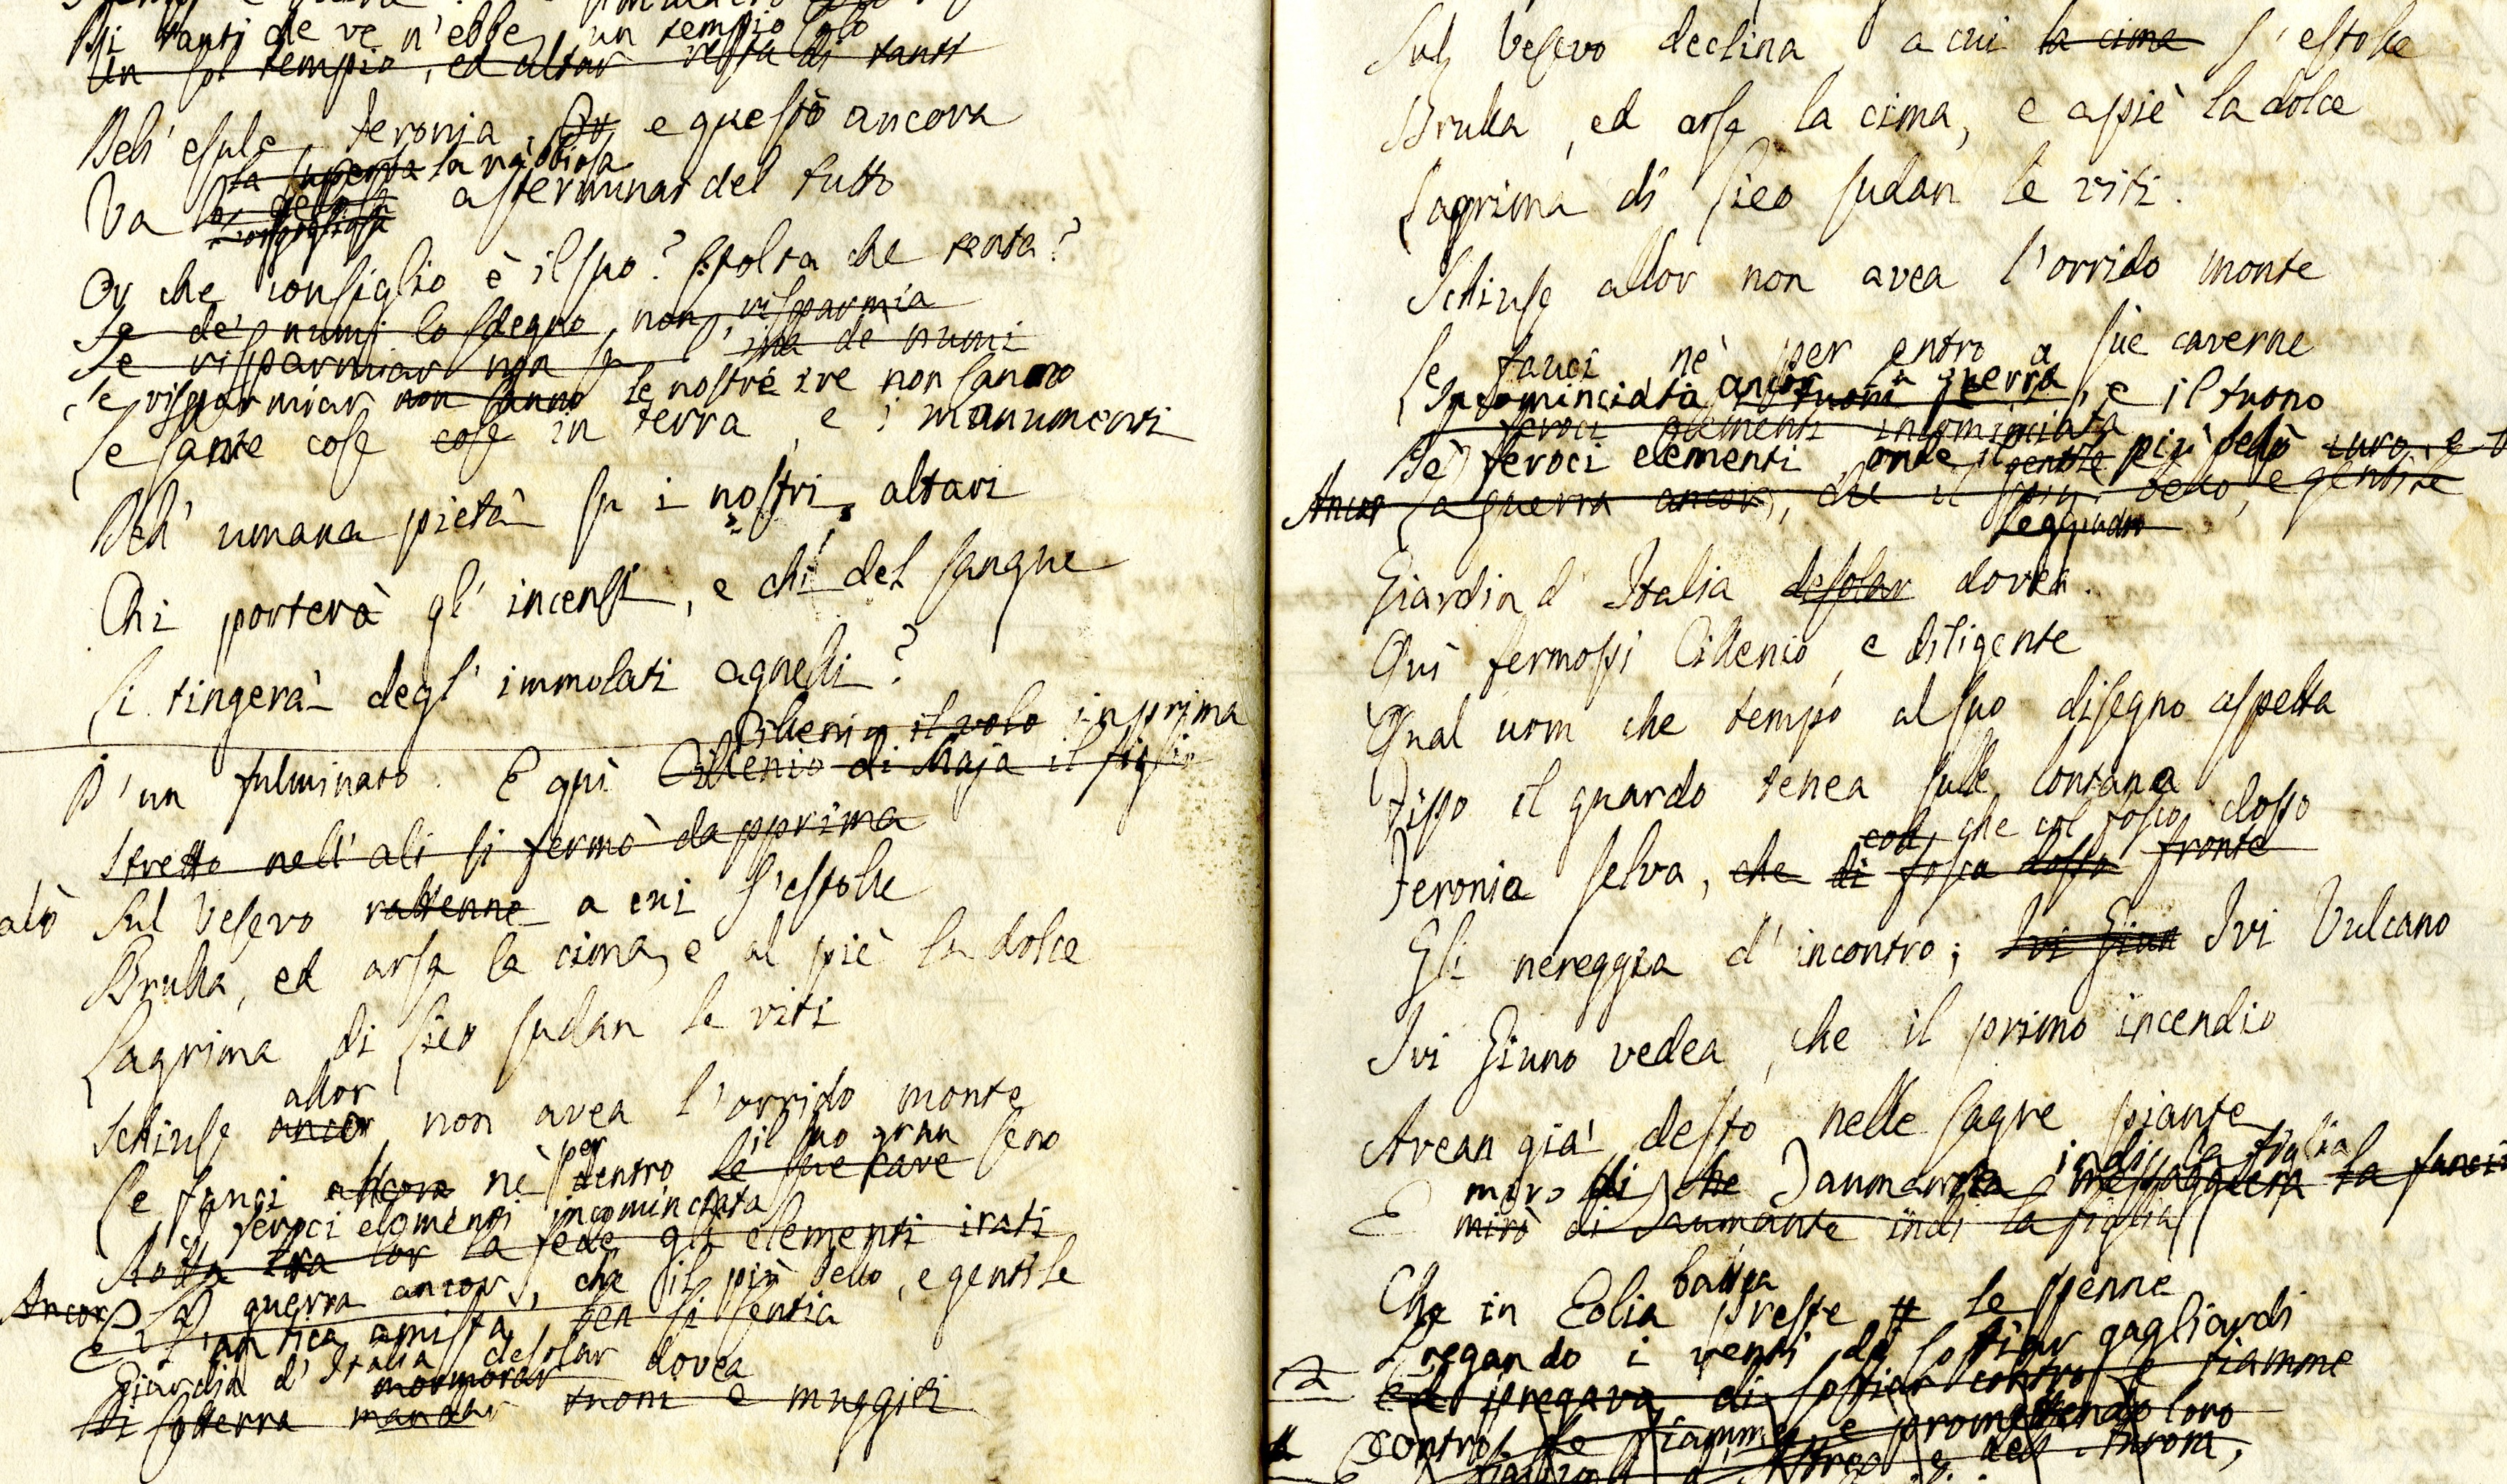 Di tanti che ve n'ebbe, un tempio solo
Un sol tempio, ed altar resta di tanti
Dell'esule Feronia, e questo ancora
la superba la rabbiosa
Va la gelosa a sterminar del tutto
orgogliosa
Or che consiglio è il suo? Stolta che tenta?
Se de' numi lo sdegno non risparmia
Se risparmiar non sa l'ira de numi
Se risparmiar non sanno le nostre ire non sanno
Le sante cose cose in terra, e i monumenti
Dell'umana pietà su i nostri altari
Chi porterà gl'incensi, e chi del sangue
Si tingerà degl'immolati agnelli?
Cillenio il volo in prima
D'un fulminato. E quì Cillenio di Maja il figlio
Stretto nell'ali si fermò da pprima
alò Sul Vesevo rattenne a cui s'estolle
Brulla, ed arsa la cima, e al piè la dolce
Lagrima di Lieo sudan le viti
allor
Schiuse ancor non avea l'orrido monte
per il suo gran
Le fauci ancora nè dentro le sue cave seno
feroci elementi incominciata
Rotta tra lor la fede gli elementi irati
Ancor La guerra ancor, che il più bello, e gentile
e l'antica amistà, ben si sentia
Giardin d'Italia desolar dovea
mormorar
Di sotterra mandar tuoni e muggiti
Sul Vesevo declina a cui la cima s'estolle
Brulla, ed arsa la cima, e a piè la dolce
Lagrima di Lieo sudan le viti.
Schiuse allor non avea l'orrido monte
Le fauci nè per entro a sue caverne
Incominciata ancor tuoni guerra, e il tuono
feroci elementi incominciata
De' feroci elementi, onde il gentile più bello
Ancor La guerra ancor, che il più bello, e gentile
leggiadro
Giardin d'Italia desolar dovea.
Quì fermossi Cillenio, e diligente
Qual uom che tempo al suo disegno aspetta
Fisso il guardo tenea sulle lontana
che col fosco dosso
Feronia selva, che di fosca dosso fronte
Gli nereggia d'incontro; Ivi Giun Ivi Vulcano
Ivi Giuno vedea, che il primo incendio
Avean già desto nelle sagre piante
indi la figlia
miro di che Taumanzia messaggiera la
E mirò di Taumante indi la figlia
battea
Che in Eolia preste le penne
Pregando i venti di soffiar gagliardi
ed pregava di soffiar contro le fiamme
Contro le fiamme, e promettendo loro